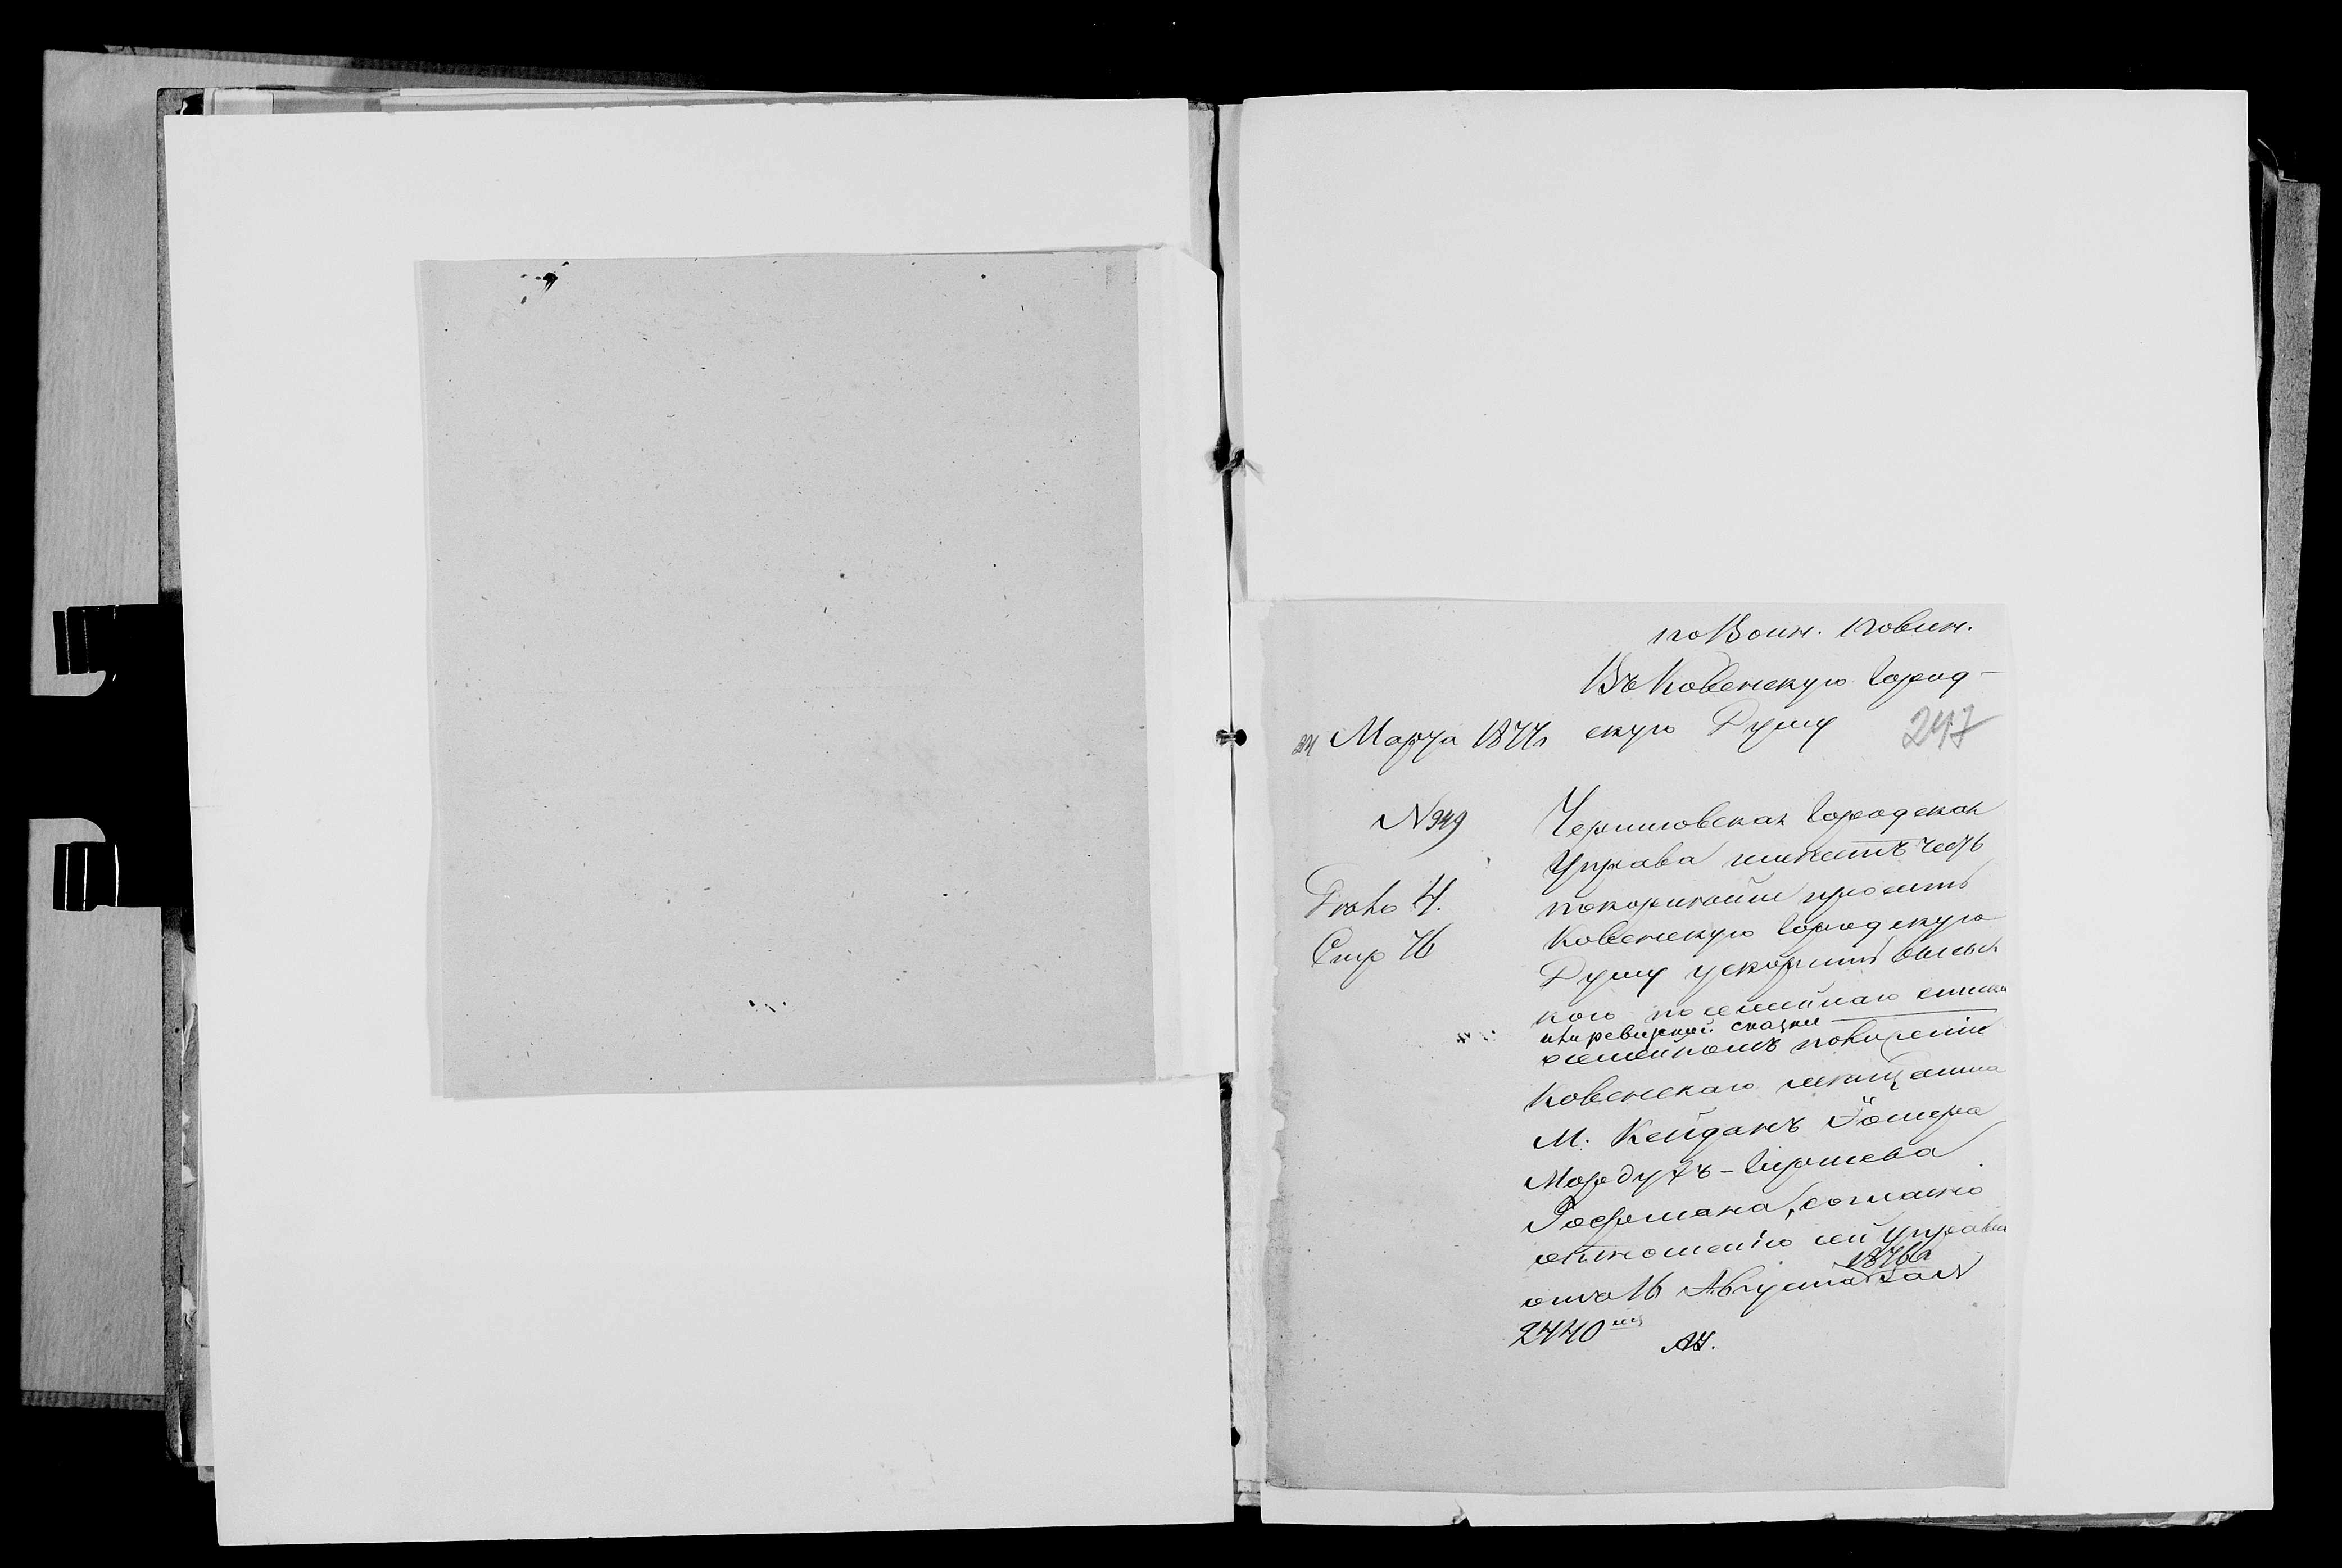 по Воин. повин.
Въ Ковенскую Город-
скую Думу
247
24 Марта 1877 г.
№ 949
Столъ 4.
Стр 76
Черниговская Городская
Управа имѣетъ честь
покорнѣйше просить
Ковенскую Городскую
Думу ускорить высыл
кою посемейнаго списка
или ревизской сказки
семейномъ положеніи
Ковенскаго мѣщанина
М. Кейданъ
Мордухъ-Гиршева
согласно
отношенію сей Управы
отъ 16 Августа 1876 г. за №
2770